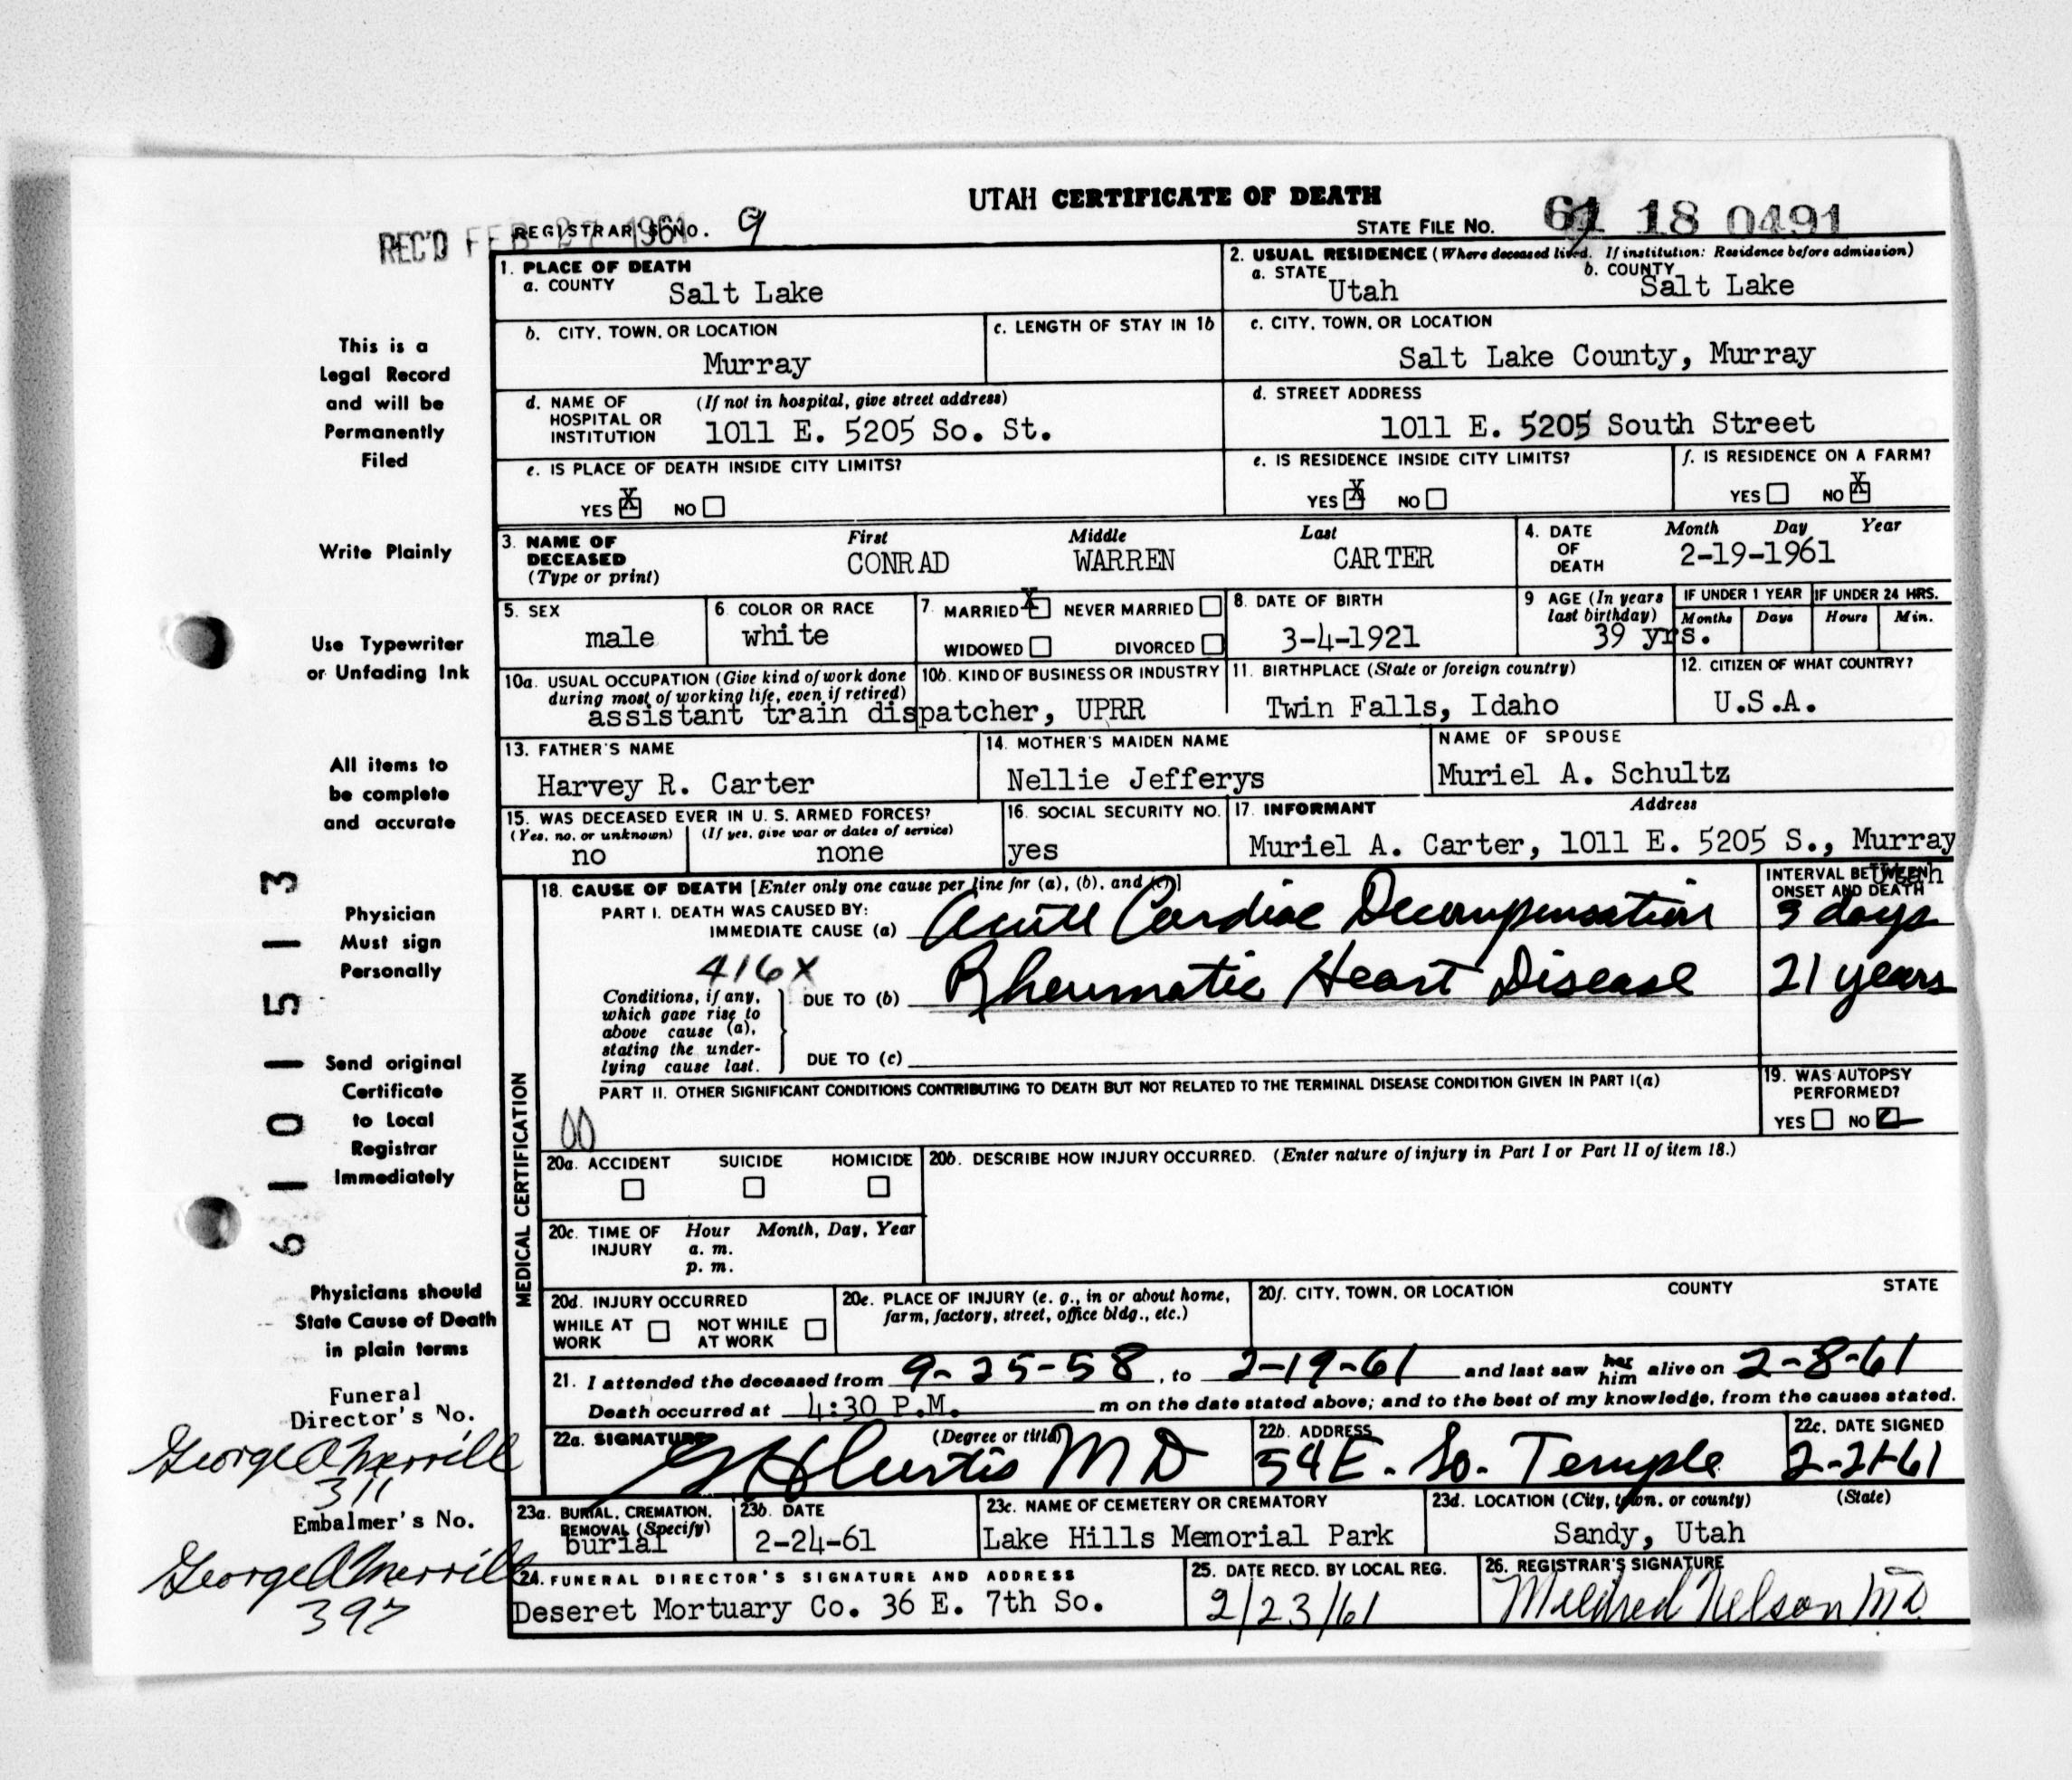 UTAH CERTIFICATE OF DEATH
REC'D FEB 27 1961
REGISTRAR'S NO. 9
STATE FILE NO. 61 18 0491
1. PLACE OF DEATH
a. COUNTY Salt Lake
2. USUAL RESIDENCE (Where deceased lived. If institution: Residence before admission)
a. STATE Utah
b. COUNTY Salt Lake
b. CITY, TOWN, OR LOCATION
Murray
c. LENGTH OF STAY IN 1b
c. CITY, TOWN, OR LOCATION
Salt Lake County, Murray
d. NAME OF HOSPITAL OR INSTITUTION (If not in hospital, give street address)
1011 E. 5205 So. St.
d. STREET ADDRESS
1011 E. 5205 South Street
e. IS PLACE OF DEATH INSIDE CITY LIMITS?
YES X NO
e. IS RESIDENCE INSIDE CITY LIMITS?
YES X NO
f. IS RESIDENCE ON A FARM?
YES NO X
3. NAME OF DECEASED (Type or print)
First Middle Last
CONRAD WARREN CARTER
4. DATE OF DEATH
Month Day Year
2-19-1961
5. SEX
male
6. COLOR OR RACE
white
7. MARRIED X NEVER MARRIED
WIDOWED DIVORCED
8. DATE OF BIRTH
3-4-1921
9 AGE (In years last birthday)
39 yrs.
IF UNDER 1 YEAR
Months Days
IF UNDER 24 HRS.
Hours Min.
10a. USUAL OCCUPATION (Give kind of work done during most of working life, even if retired)
10b. KIND OF BUSINESS OR INDUSTRY
assistant train dispatcher, UPRR
11. BIRTHPLACE (State or foreign country)
Twin Falls, Idaho
12. CITIZEN OF WHAT COUNTRY?
U.S.A.
13. FATHER'S NAME
Harvey R. Carter
14. MOTHER'S MAIDEN NAME
Nellie Jefferys
NAME OF SPOUSE
Muriel A. Schultz
15. WAS DECEASED EVER IN U. S. ARMED FORCES?
(Yes, no, or unknown) (If yes, give war or dates of service)
no none
16. SOCIAL SECURITY NO.
yes
17. INFORMANT Address
Muriel A. Carter, 1011 E. 5205 S., Murray
Utah
MEDICAL CERTIFICATION
18. CAUSE OF DEATH [Enter only one cause per line for (a), (b), and (c)]
INTERVAL BETWEEN ONSET AND DEATH
PART I. DEATH WAS CAUSED BY:
IMMEDIATE CAUSE (a) Acute Cardiac Decompensation 3 days
416X
Conditions, if any, which gave rise to above cause (a), stating the underlying cause last.
DUE TO (b) Rheumatic Heart Disease 21 years
DUE TO (c)
PART II. OTHER SIGNIFICANT CONDITIONS CONTRIBUTING TO DEATH BUT NOT RELATED TO THE TERMINAL DISEASE CONDITION GIVEN IN PART I(a)
00
19. WAS AUTOPSY PERFORMED?
YES NO
20a. ACCIDENT SUICIDE HOMICIDE
20b. DESCRIBE HOW INJURY OCCURRED. (Enter nature of injury in Part I or Part II of item 18.)
20c. TIME OF INJURY Hour Month, Day, Year
a. m.
p. m.
20d. INJURY OCCURRED
WHILE AT WORK NOT WHILE AT WORK
20e. PLACE OF INJURY (e. g., in or about home, farm, factory, street, office bldg., etc.)
20f. CITY, TOWN, OR LOCATION COUNTY STATE
21. I attended the deceased from 9-25-58, to 2-19-61 and last saw her him alive on 2-8-61
Death occurred at 4:30 P.M. m on the date stated above; and to the best of my knowledge, from the causes stated.
22a. SIGNATURE (Degree or title)
G H Curtis MD
22b. ADDRESS
54 E. So. Temple
22c. DATE SIGNED
2-21-61
23a. BURIAL, CREMATION, REMOVAL (Specify)
burial
23b. DATE
2-24-61
23c. NAME OF CEMETERY OR CREMATORY
Lake Hills Memorial Park
23d. LOCATION (City, town, or county) (State)
Sandy, Utah
24. FUNERAL DIRECTOR'S SIGNATURE AND ADDRESS
Deseret Mortuary Co. 36 E. 7th So.
25. DATE RECD. BY LOCAL REG.
2/23/61
26. REGISTRAR'S SIGNATURE
Mildred Nelson MD
This is a
Legal Record
and will be
Permanently
Filed
Write Plainly
Use Typewriter
or Unfading Ink
All items to
be complete
and accurate
Physician
Must sign
Personally
Send original
Certificate
to Local
Registrar
Immediately
Physicians should
State Cause of Death
in plain terms
Funeral
Director's No.
George A Merrill
311
Embalmer's No.
George A Merrill
397
6 1 0 1 5 1 3